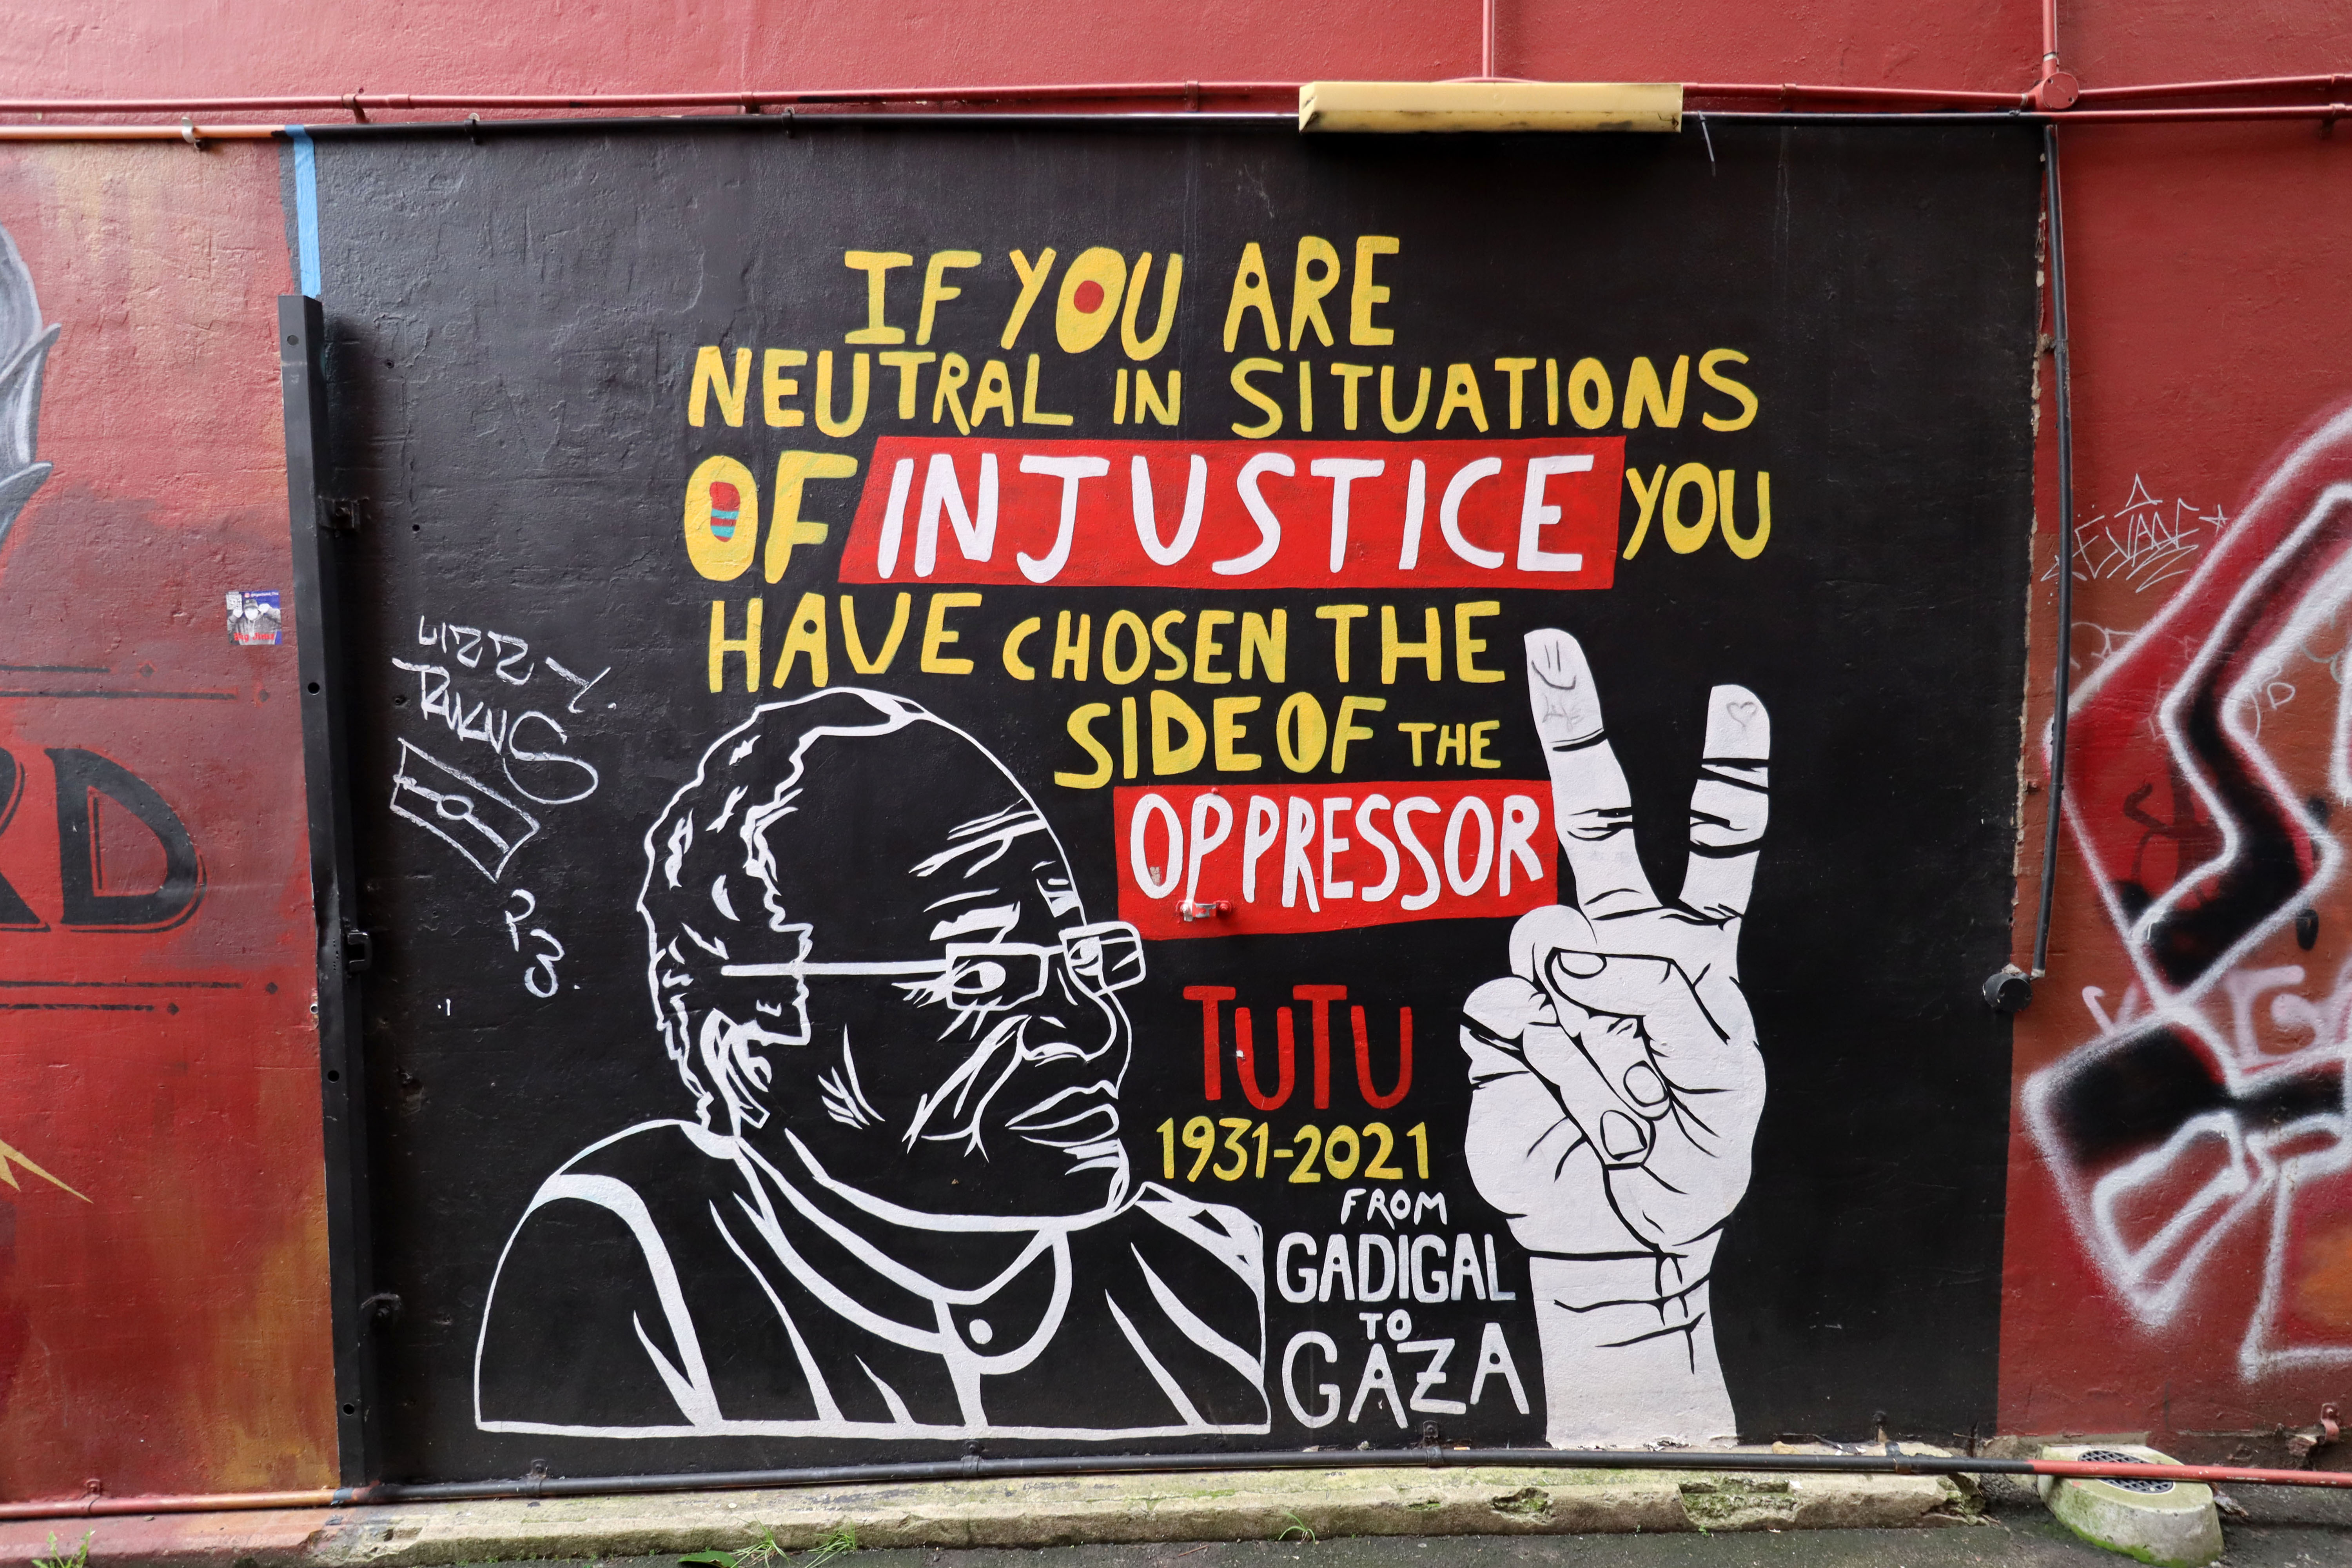 IF YOU ARE
NEUTRAL IN SITUATIONS
OF INJUSTICE YOU
HAVE CHOSEN THE
SIDE OF THE
OPPRESSOR
TUTU
1931-2021
FROM
GADIGAL
TO
GAZA
LIZZY